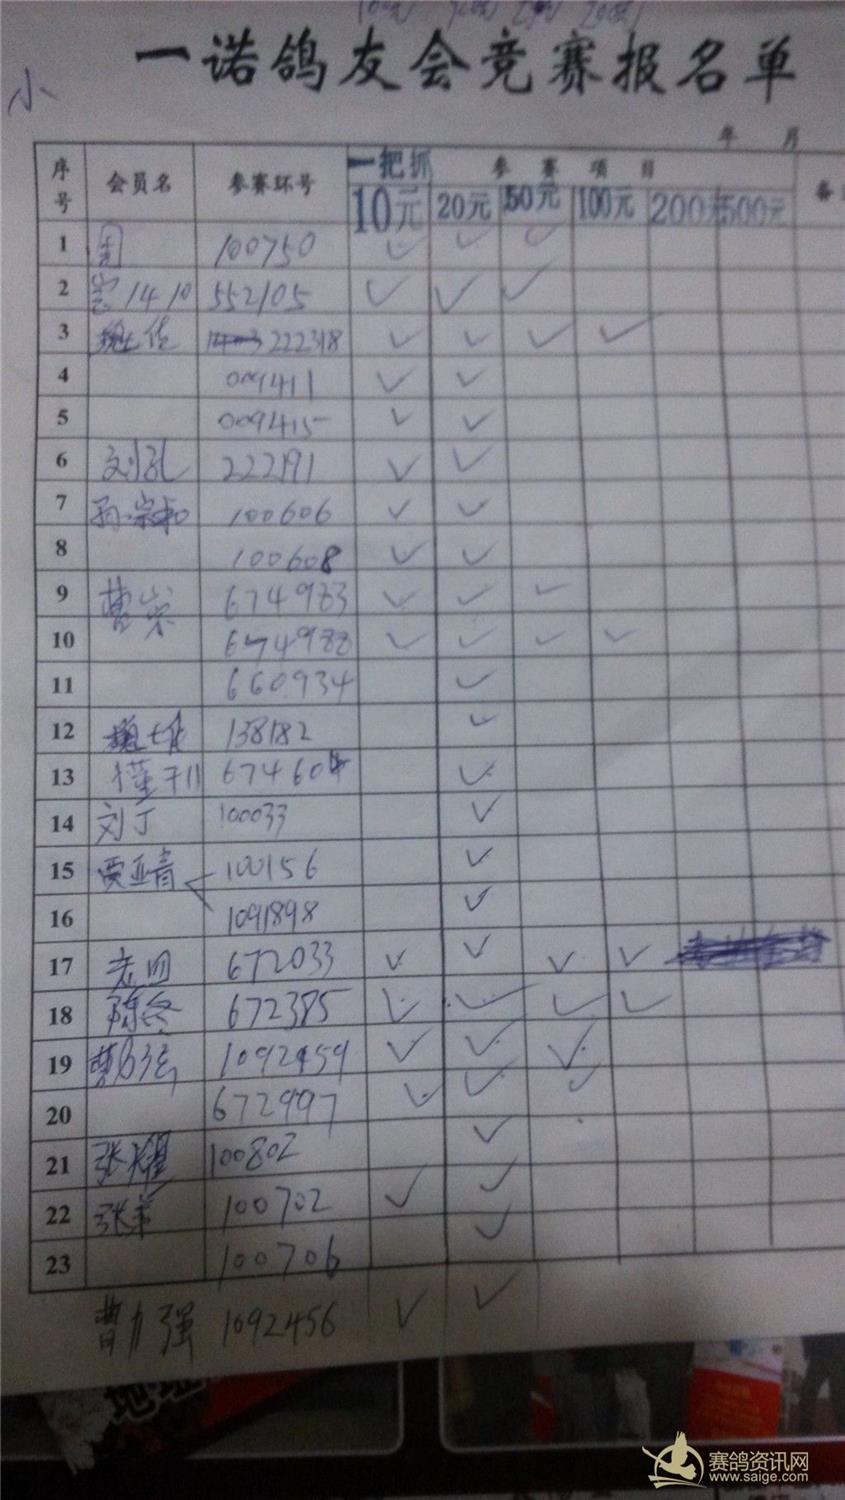 一诺鸽友会竞赛报名单
小
年 月
序号 会员名 参赛环号 一把抓 参赛项目 备
10元 20元 50元 100元 200元 500元
1 周 100750 ✓ ✓ ✓
2 宫1410 552105 ✓ ✓ ✓
3 222318 ✓ ✓ ✓ ✓
4 009411 ✓ ✓
5 009415 ✓ ✓
6 刘孔 222191 ✓ ✓
7 孙宗和 100606 ✓ ✓
8 100608 ✓ ✓
9 曹崇 674983 ✓ ✓ ✓
10 674988 ✓ ✓ ✓ ✓
11 660934 ✓
12 138182 ✓
13 674604 ✓
14 刘丁 100033 ✓
15 贾亚青 100156 ✓
16 1091898 ✓
17 老四 672033 ✓ ✓ ✓ ✓
18 陈终 672385 ✓ ✓ ✓ ✓
19 1092459 ✓ ✓ ✓
20 672997 ✓ ✓ ✓
21 张耀 100802 ✓
22 张弟 100702 ✓ ✓
23 100706 ✓
曹力强 1092456 ✓ ✓
赛鸽资讯网
www.saige.com